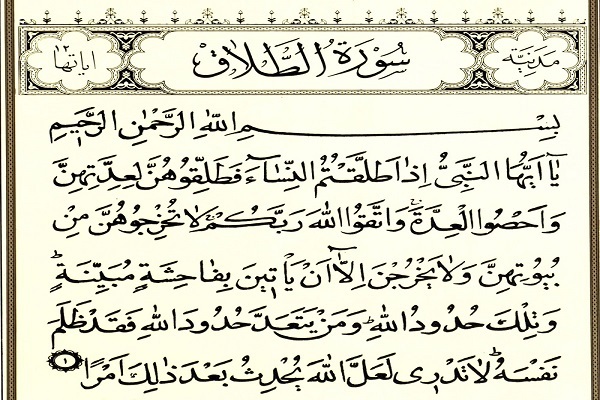 مدنية سورة الطلاق اياتها ١٢
بِسْمِ اللّٰهِ الرَّحْمٰنِ الرَّحِيمِ
يَٓا اَيُّهَا النَّبِيُّ اِذَا طَلَّقْتُمُ النِّسَٓاءَ فَطَلِّقُوهُنَّ لِعِدَّتِهِنَّ
وَاَحْصُوا الْعِدَّةَۚ وَاتَّقُوا اللّٰهَ رَبَّكُمْۚ لَا تُخْرِجُوهُنَّ مِنْ
بُيُوتِهِنَّ وَلَا يَخْرُجْنَ اِلَّٓا اَنْ يَأْت۪ينَ بِفَاحِشَةٍ مُبَيِّنَةٍۜ
وَتِلْكَ حُدُودُ اللّٰهِۜ وَمَنْ يَتَعَدَّ حُدُودَ اللّٰهِ فَقَدْ ظَلَمَ
نَفْسَهُۜ لَا تَدْر۪ي لَعَلَّ اللّٰهَ يُحْدِثُ بَعْدَ ذٰلِكَ اَمْرًا ١